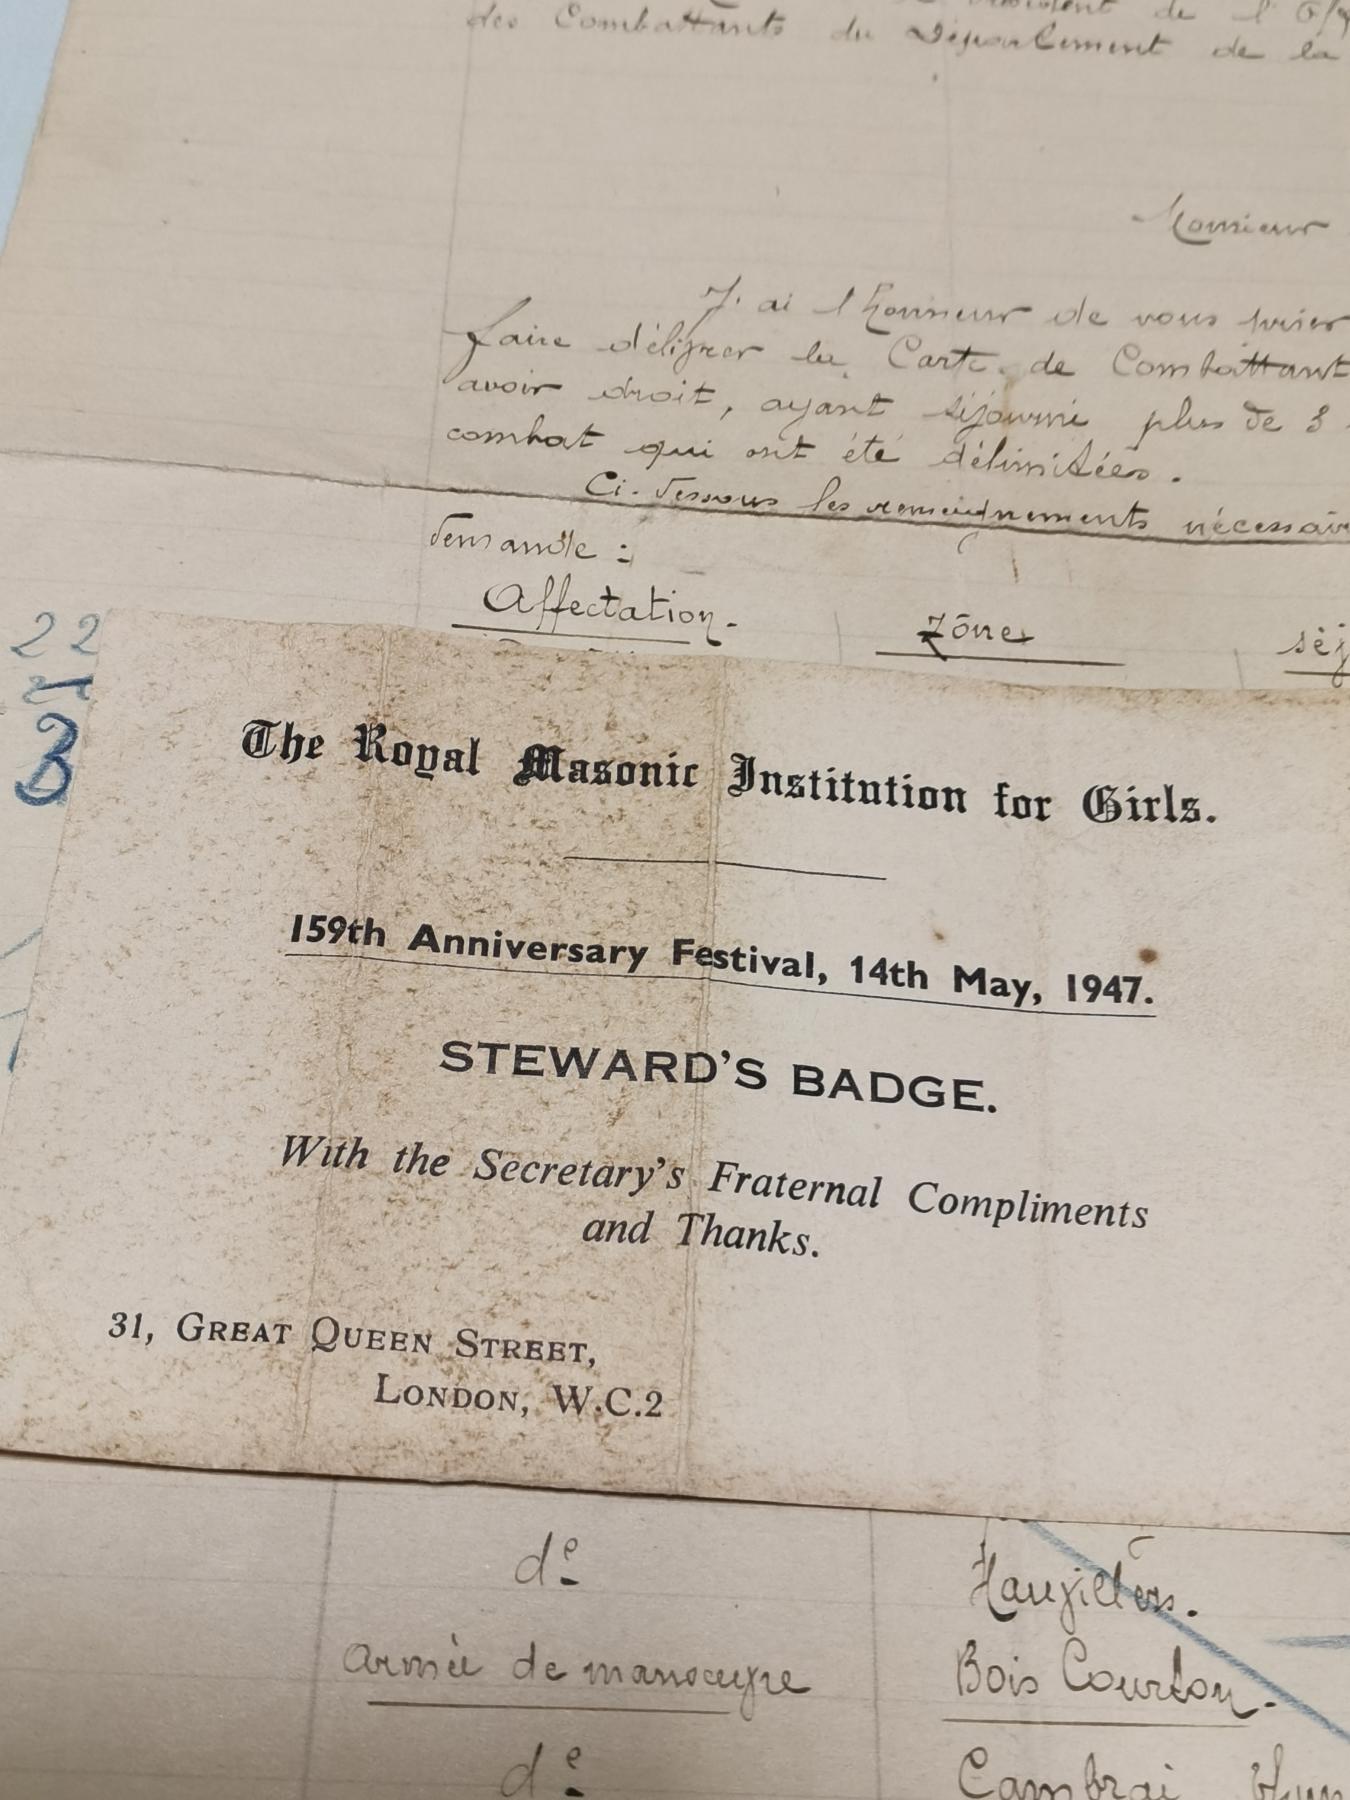 Président de l'
des Combattants du Département de la
Monsieur
J'ai l'honneur de vous prier
faire délivrer la Carte de Combattant
avoir droit, ayant séjourné plus de 3
combat qui ont été délimitées.
Ci-dessous les renseignements nécessair
demande :
Affectation. Zône séj
22
B
The Royal Masonic Institution for Girls.
159th Anniversary Festival, 14th May, 1947.
STEWARD'S BADGE.
With the Secretary's Fraternal Compliments
and Thanks.
31, GREAT QUEEN STREET,
LONDON, W.C.2
de
armée de manoeuvre Bois Courton.
de Cambrai